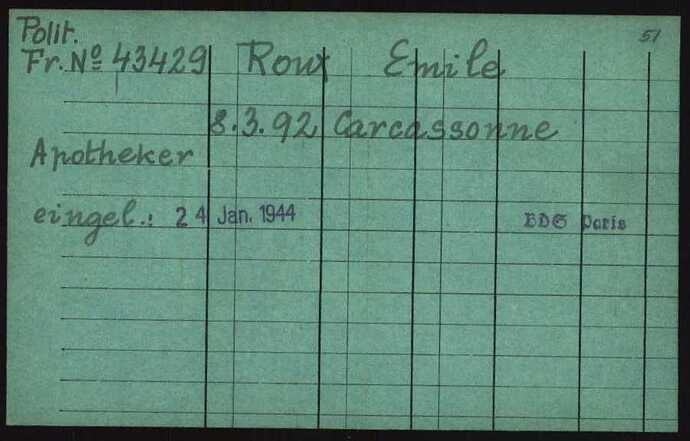 Polit. 51
Fr. Nº 43429 Roux Emile
8.3.92 Carcassonne
Apotheker
eingel.: 24 Jan. 1944 BDS Paris